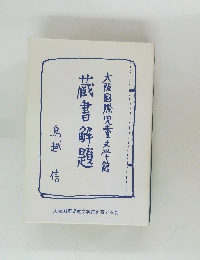 大阪国際児童文学館
蔵書解題
鳥越 信